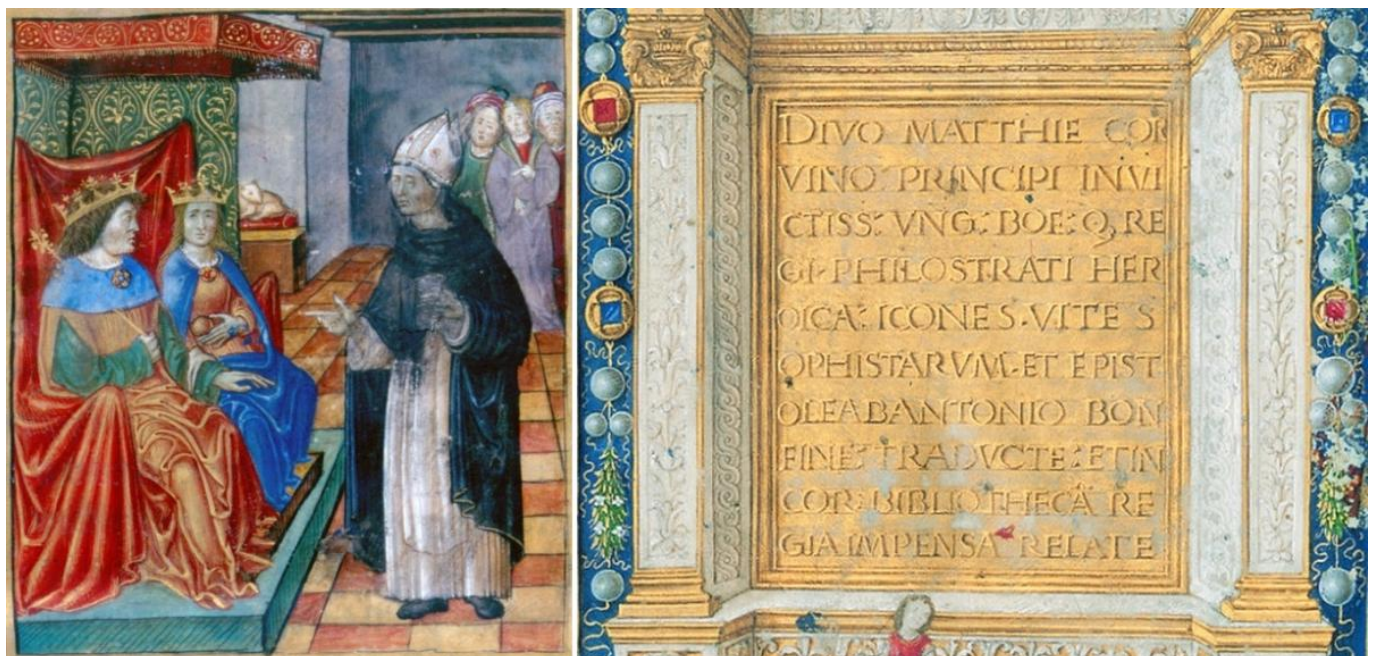 DIVO MATTHIE COR
VINO PRINCIPI INVI
CTISS: VNG: BOE: Q, RE
GI PHILOSTRATI HER
OICA: ICONES. VITE S
OPHISTARVM. ET EPIST
OLE AB ANTONIO BON
FINE: TRADVCTE: ET IN
COR: BIBLIOTHECĀ RE
GIA IMPENSA RELATE